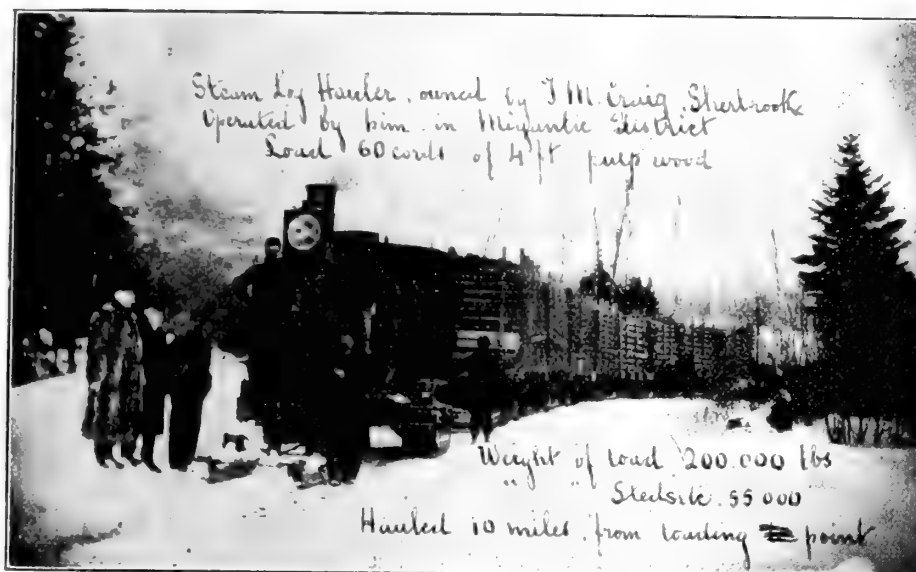 Steam Log Hauler, owned by J. M. Craig, Sherbrooke
Operated by him in Megantic District
Load 60 cords of 4 ft pulp wood
Weight of Load 200.000 lbs
" " 55 000
Hauled 10 miles from loading point